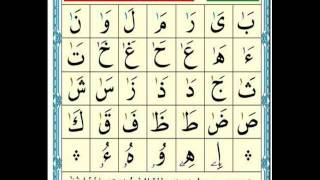 بَ یَ رَ مَ لَ وَ نَ
ءَ هَ عَ حَ غَ خَ تَ
ثَ جَ دَ ذَ زَ سَ شَ
صَ ضَ طَ ظَ فَ قَ كَ
اٖ هٖ وٗ هٗ ءٗ